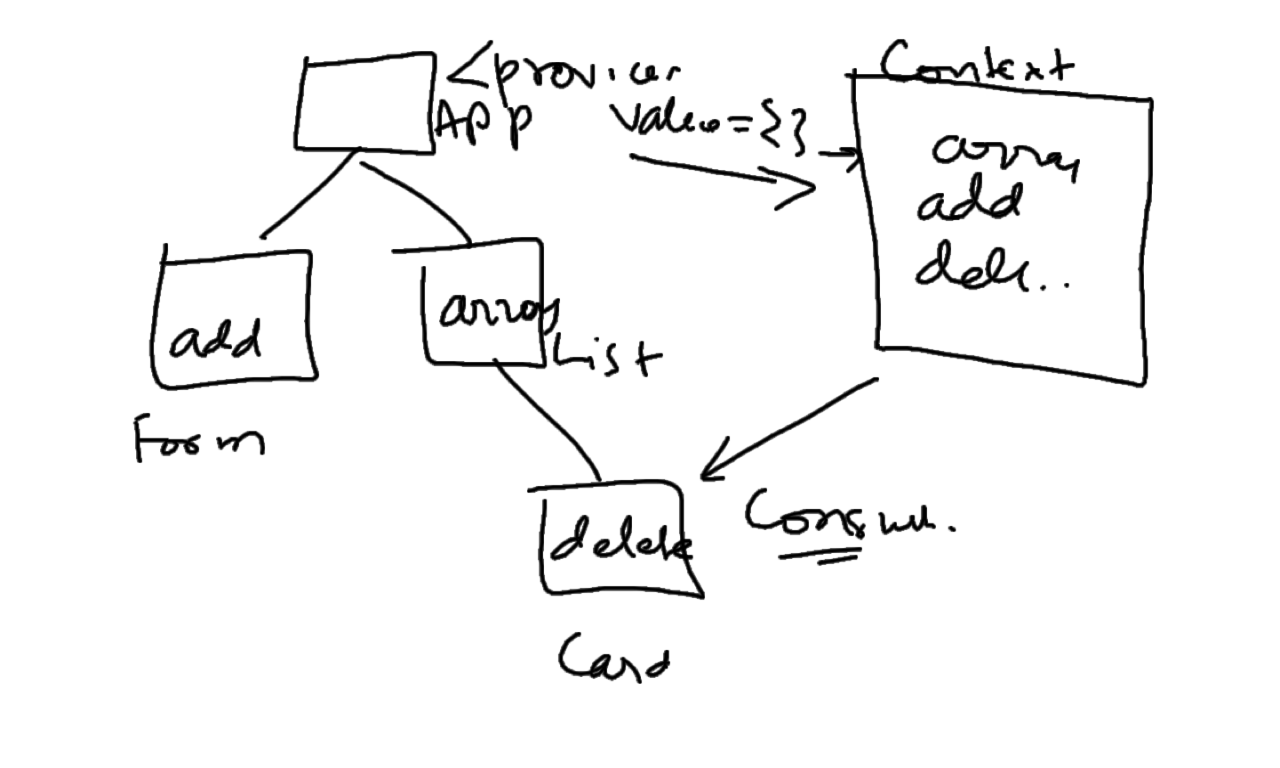 <provider
App
value={}
Context
array
add
dele..
add
Form
array
List
delete
Card
Consum.